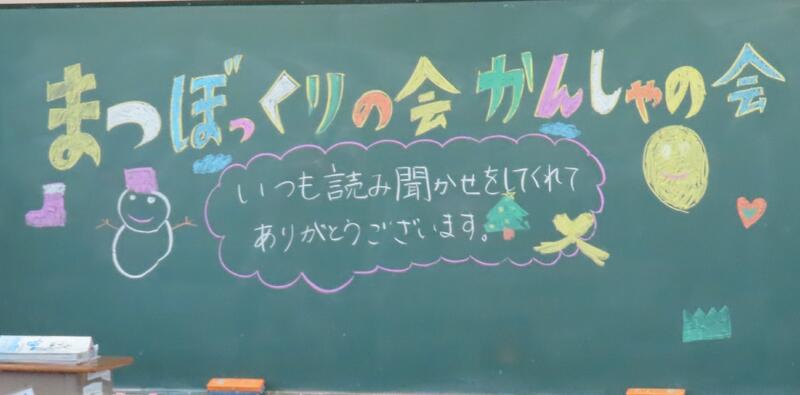 まつぼっくりの会 かんしゃの会
いつも読み聞かせをしてくれて
ありがとうございます。